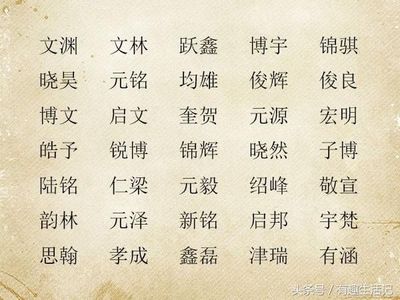 文渊 文林 跃鑫 博宇 锦骐
晓昊 元铭 均雄 俊辉 俊良
博文 启文 奎贺 元源 宏明
皓予 锐博 锦辉 晓然 子博
陆铭 仁梁 元毅 绍峰 敬宣
韵林 元泽 新铭 启邦 宇梵
思翰 孝成 鑫磊 津瑞 有涵
头条号/有趣生活记